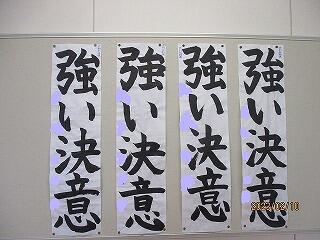 強い決意
強い決意
強い決意
強い決意
2022/02/10